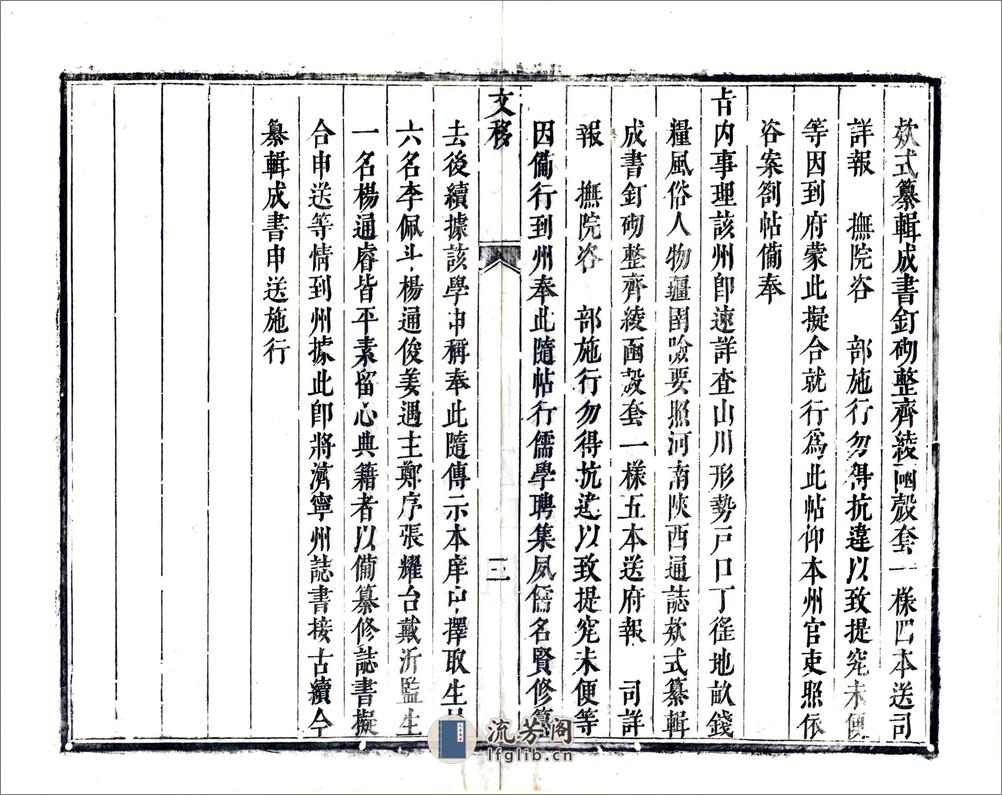 欵式纂輯成書釘砌整齊綾凾殼套一樣四本送司
詳報　撫院咨　部施行勿得抗違以致提究未便
等因到府蒙此擬合就行爲此帖仰本州官吏照依
咨案劄帖備奉
占内事理該州卽速詳查山川形勢戸口丁徭地畝錢
糧風俗人物疆圉險要照河南陝西通誌欵式纂輯
成書釘砌整齊綾凾殼套一樣五本送府報　司詳
報　撫院咨　部施行勿得抗違以致提究未便等
因備行到州奉此隨帖行儒學聘集夙儒名賢修纂
文移
三
去後續據該學申稱奉此隨傳示本庠中擇取生員
六名李佩斗楊通俊姜遇主鄭序張耀台戴沂監生
一名楊通睿皆平素留心典籍者以備纂修誌書擬
合申送等情到州據此卽將濟寧州誌書接古續今
纂輯成書申送施行
流芳阁
lfglib.cn